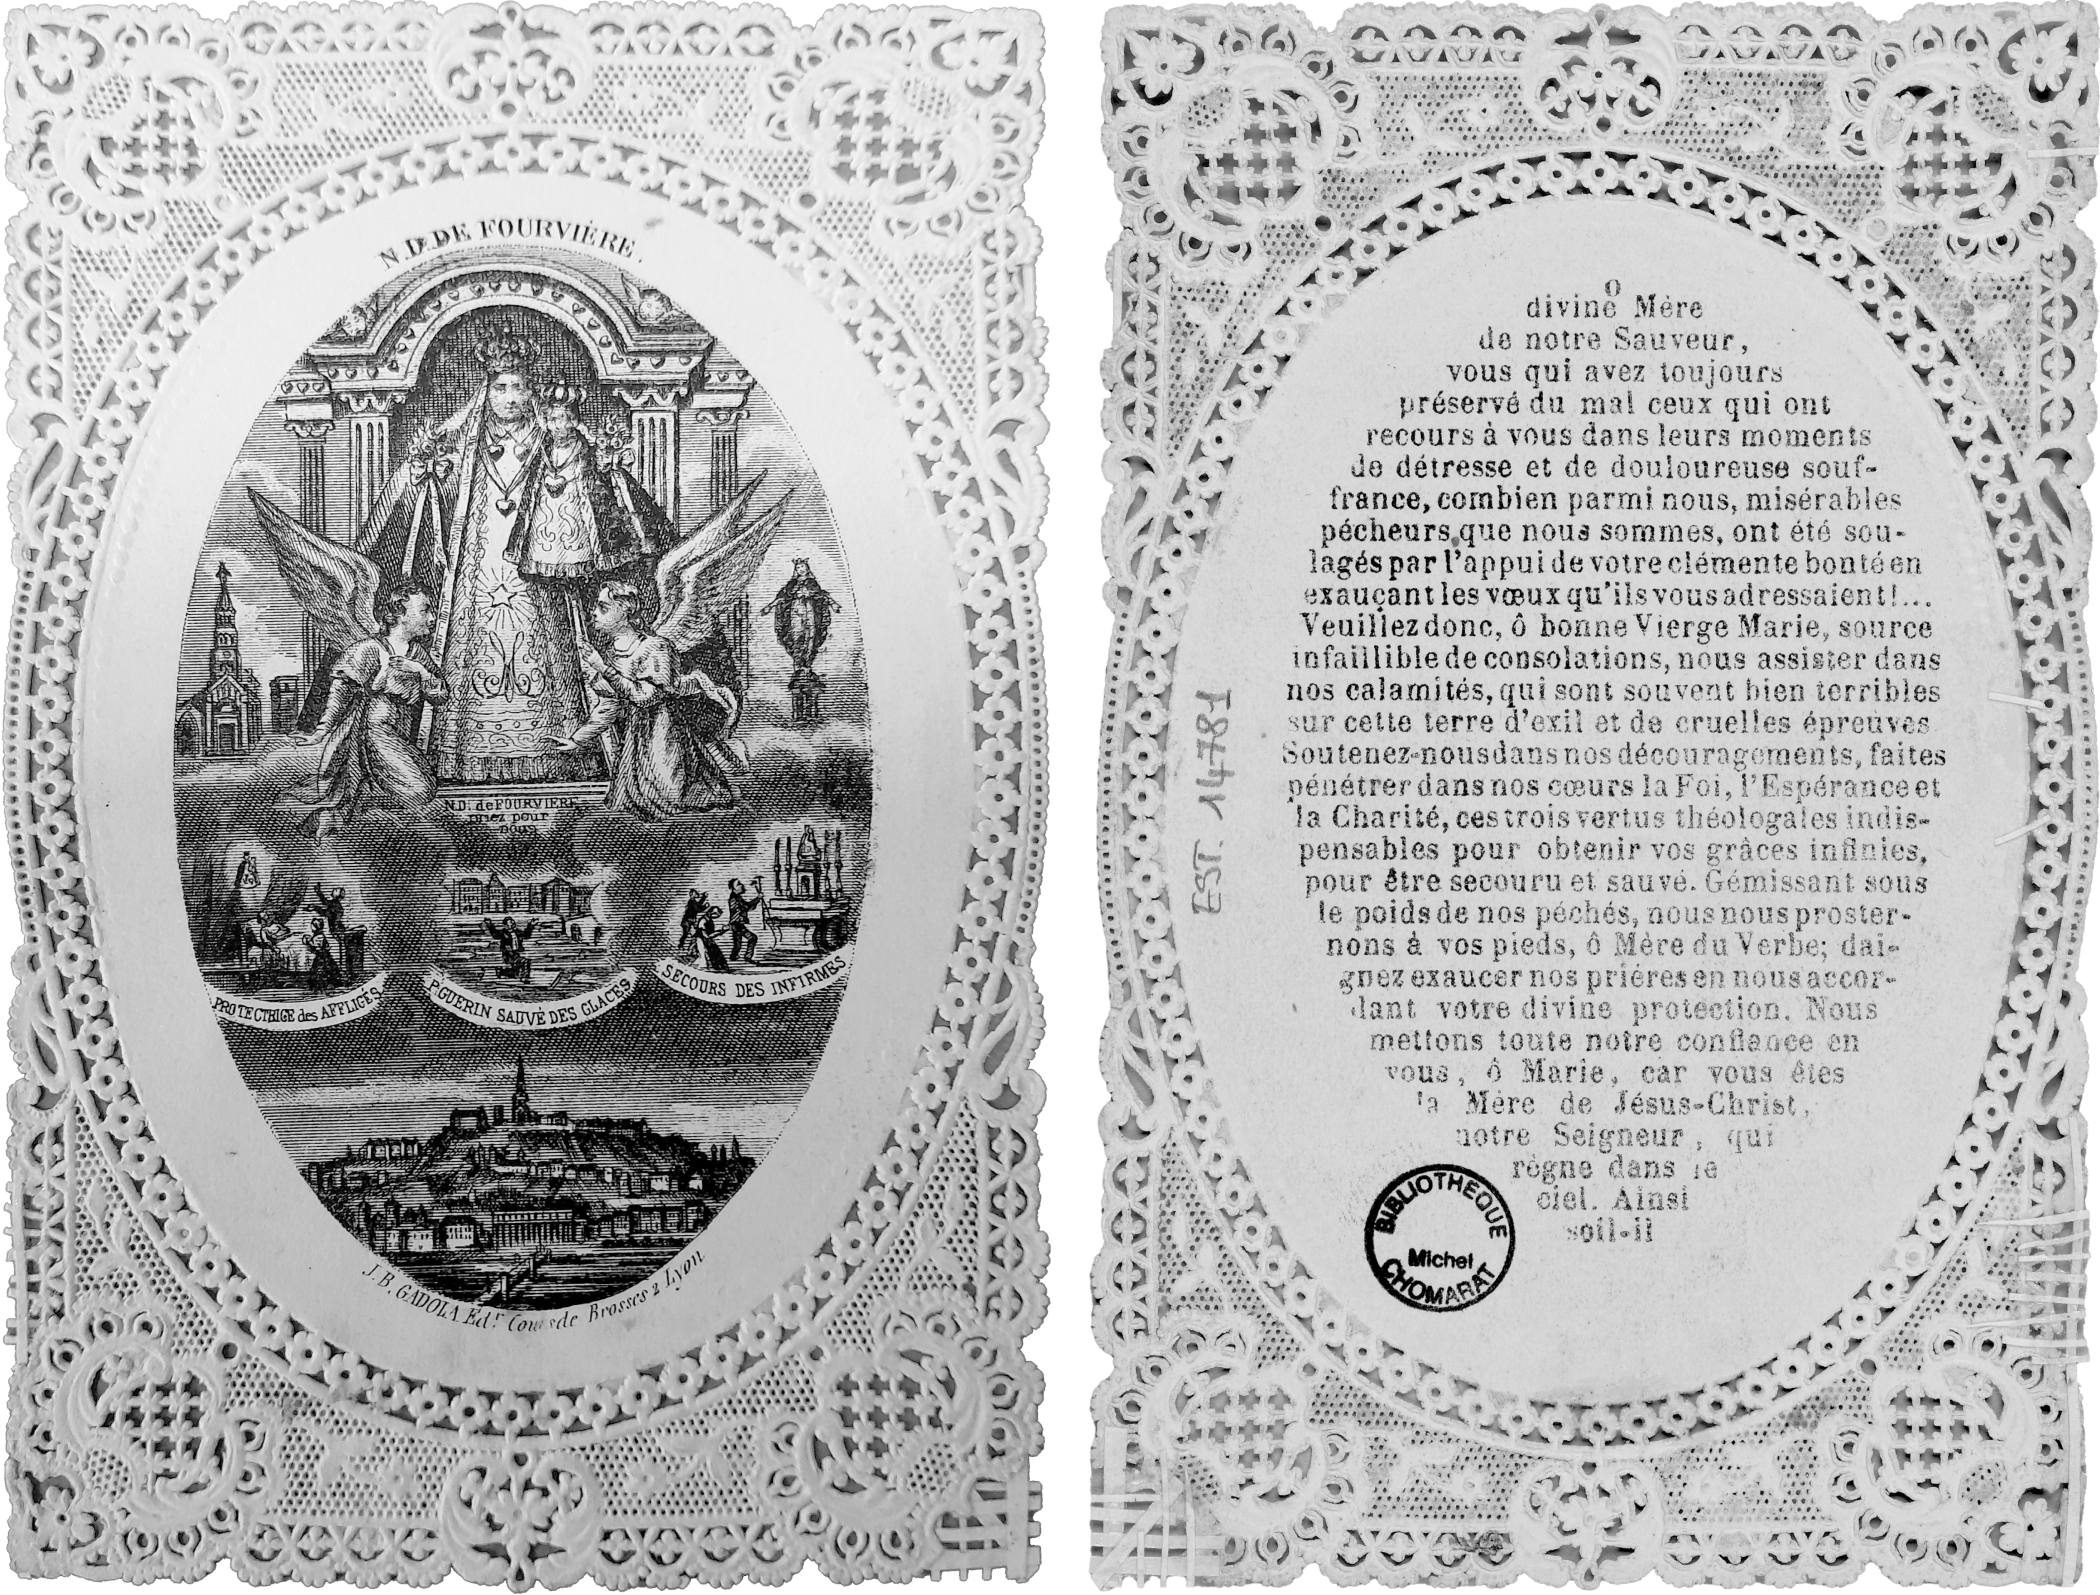 N. De DE FOURVIÈRE.
N.D. de FOURVIERE
priez pour
nous
PROTECTRICE des AFFLIGÉS
P. GUERIN SAUVÉ DES GLACES
SECOURS DES INFIRMES
J. B. GADOLA Edr. Cours de Brosses 2 Lyon
O
divine Mère
de notre Sauveur,
vous qui avez toujours
préservé du mal ceux qui ont
recours à vous dans leurs moments
de détresse et de douloureuse souf-
france, combien parmi nous, misérables
pécheurs que nous sommes, ont été sou-
lagés par l'appui de votre clémente bonté en
exauçant les vœux qu'ils vous adressaient!...
Veuillez donc, ô bonne Vierge Marie, source
infaillible de consolations, nous assister dans
nos calamités, qui sont souvent bien terribles
sur cette terre d'exil et de cruelles épreuves
Soutenez-nous dans nos découragements, faites
pénétrer dans nos cœurs la Foi, l'Espérance et
la Charité, ces trois vertus théologales indis-
pensables pour obtenir vos grâces infinies,
pour être secouru et sauvé. Gémissant sous
le poids de nos péchés, nous nous proster-
nons à vos pieds, ô Mère du Verbe; dai-
gnez exaucer nos prières en nous accor-
dant votre divine protection. Nous
mettons toute notre confiance en
vous, ô Marie, car vous êtes
la Mère de Jésus-Christ,
notre Seigneur, qui
règne dans le
ciel. Ainsi
soit-il
EST. 14781
BIBLIOTHEQUE
Michel
CHOMARAT